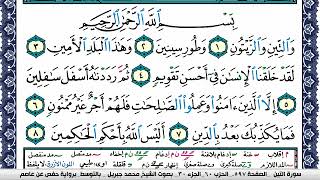 بِسْمِ اللَّهِ الرَّحْمَٰنِ الرَّحِيمِ
وَالتِّينِ وَالزَّيْتُونِ ١ وَطُورِ سِينِينَ ٢ وَهَٰذَا الْبَلَدِ الْأَمِينِ ٣
لَقَدْ خَلَقْنَا الْإِنسَانَ فِي أَحْسَنِ تَقْوِيمٍ ٤ ثُمَّ رَدَدْنَاهُ أَسْفَلَ سَافِلِينَ
٥ إِلَّا الَّذِينَ آمَنُوا وَعَمِلُوا الصَّالِحَاتِ فَلَهُمْ أَجْرٌ غَيْرُ مَمْنُونٍ ٦
فَمَا يُكَذِّبُكَ بَعْدُ بِالدِّينِ ٧ أَلَيْسَ اللَّهُ بِأَحْكَمِ الْحَاكِمِينَ ٨
سورة التين الصفحة ٥٩٧ الحزب ٦٠ الجزء ٣٠ بصوت الشيخ محمد جبريل بالتوسط برواية حفص عن عاصم